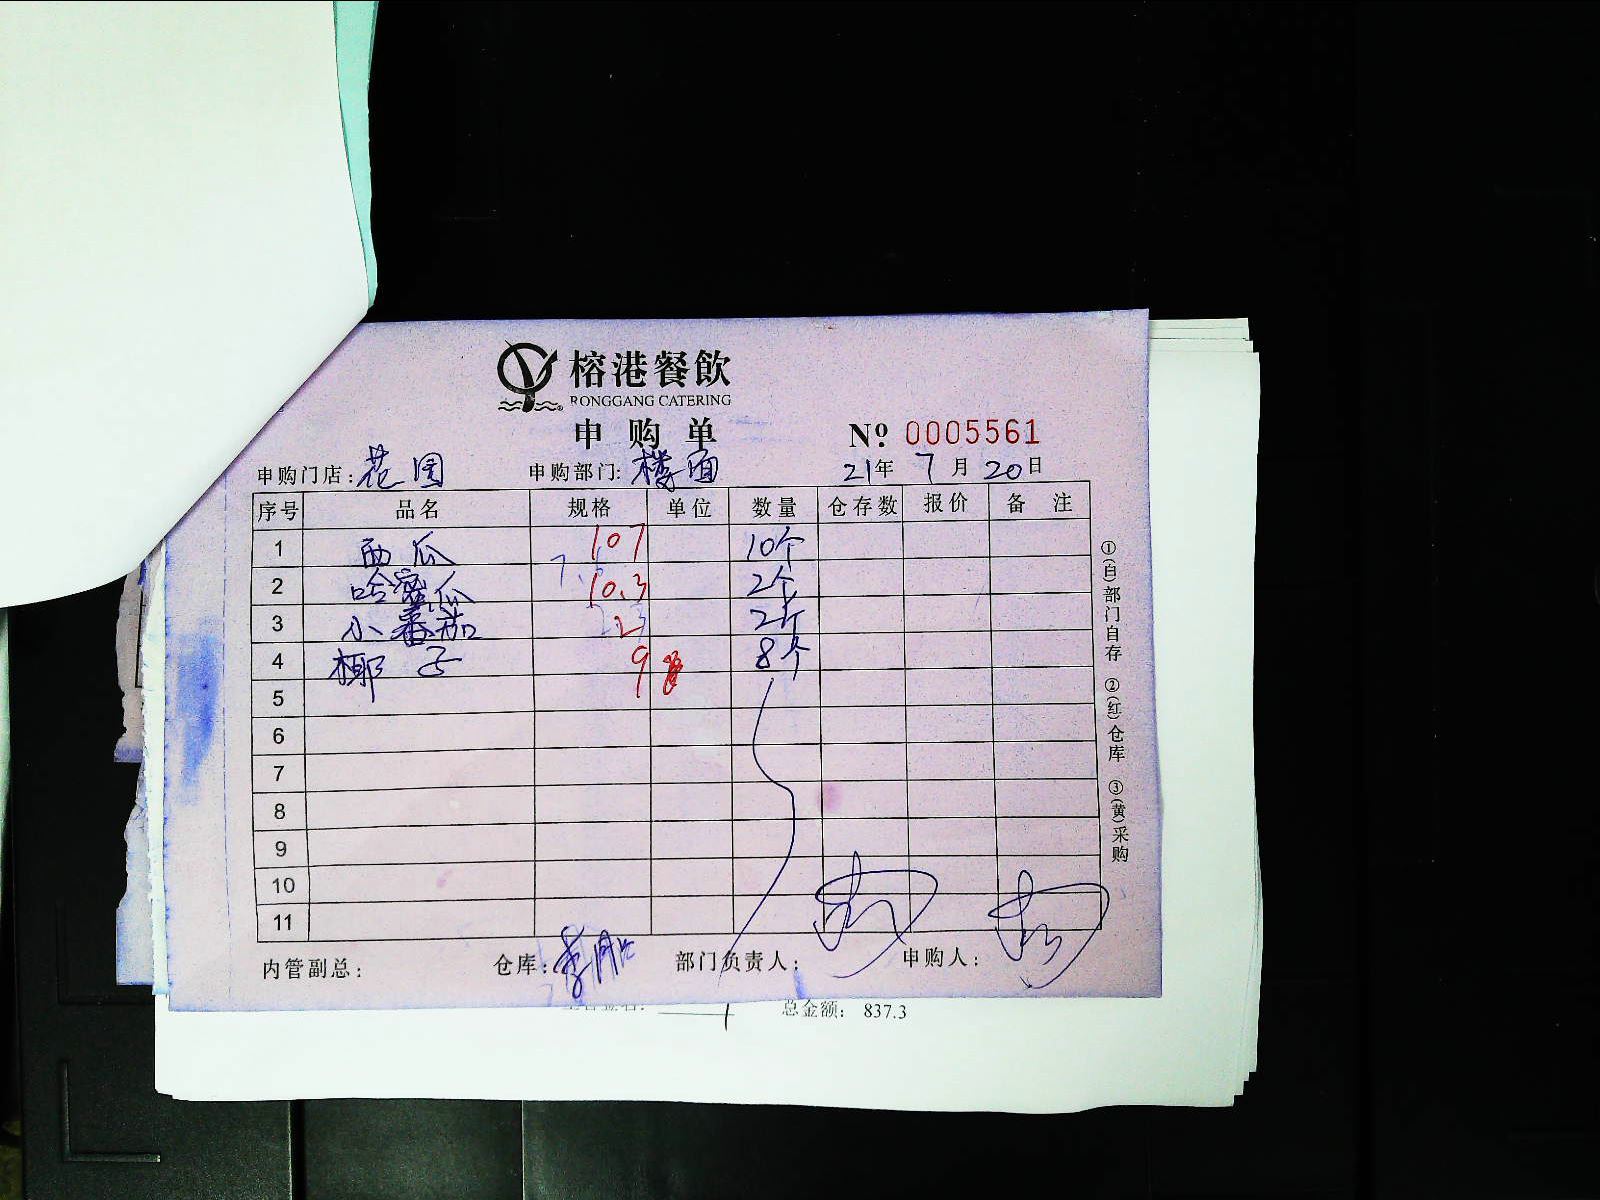 榕港餐飲
RONGGANG CATERING
申购单
№ 0005561
申购门店：花园 申购部门：楼面 21年 7月 20日
序号 品名 规格 单位 数量 仓存数 报价 备注
1 西瓜 107 10个
2 哈密瓜 10.3 2个
3 小番茄 2 2斤
4 椰子 9 8个
5
6
7
8
9
10
11
①(白)部门自存 ②(红)仓库 ③(黄)采购
内管副总： 仓库： 部门负责人： 申购人：
总金额： 837.3